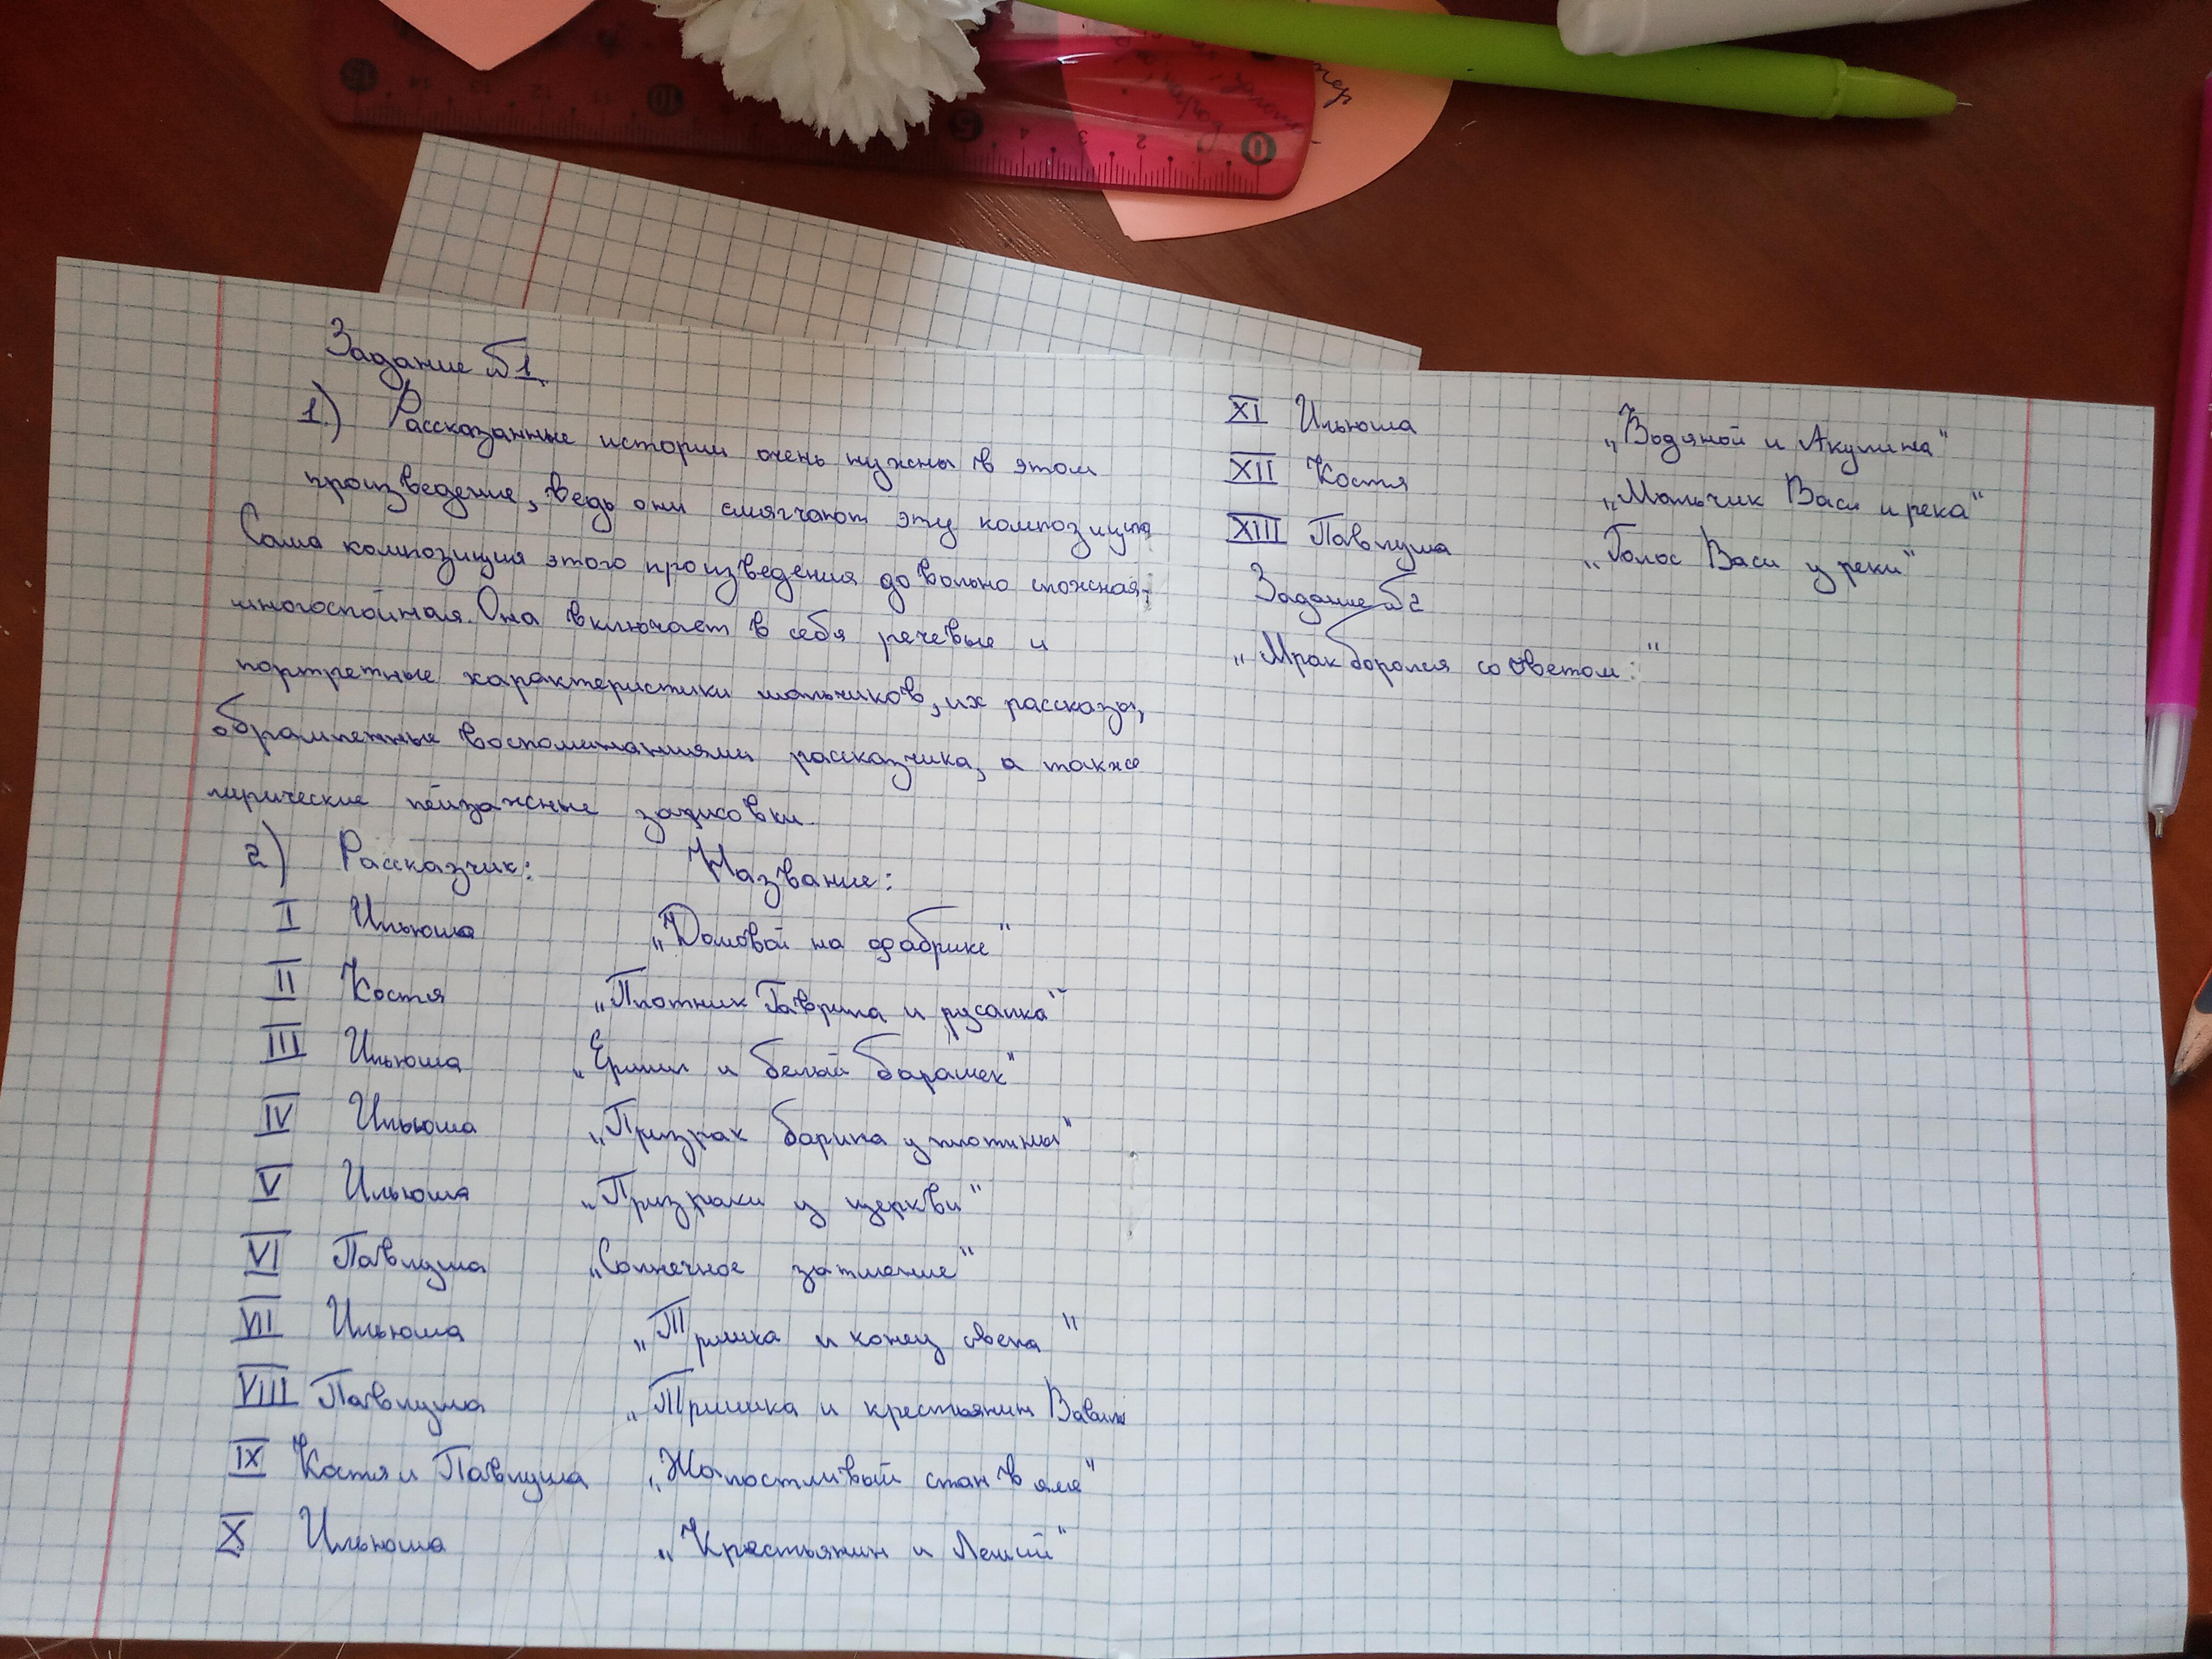 Задание №1.
1.) Рассказанные истории очень нужны в этом
произведение, ведь они смягчают эту композицию
Сама композиция этого произведения довольно сложная,
многослойная. Она включает в себя речевые и
портретные характеристики мальчиков, их рассказы,
обрамленные воспоминаниями рассказчика, а также
лирические пейзажные зарисовки.
2) Рассказчик: Название:
I Ильюша „Домовой на фабрике"
II Костя „Плотник Гаврила и русалка"
III Ильюша „Ермил и белый барашек"
IV Ильюша „Призрак барина у плотины"
V Ильюша „Призраки у церкви"
VI Павлуша „Солнечное затмение"
VII Ильюша „Тришка и конец света"
VIII Павлуша „Тришка и крестьянин Вавила
IX Костя и Павлуша „Жалостливый стон в яме"
X Ильюша „Крестьянин и Леший"
XI Ильюша „Водяной и Акулина"
XII Костя „Мальчик Вася и река"
XIII Павлуша „Голос Васи у реки"
Задание №2
„Мрак боролся со светом:"
15 14 13 12 11 10 5 4 3 2 1 0